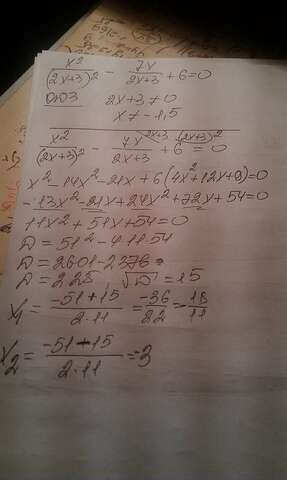 x²/(2x+3)² - 7x/(2x+3) + 6 = 0
ОДЗ 2x+3 ≠ 0
x ≠ -1,5
x²/(2x+3)² - 7x^(2x+3)/(2x+3) + 6^((2x+3)²) = 0
x² - 14x² - 21x + 6(4x² + 12x + 9) = 0
-13x² - 21x + 24x² + 72x + 54 = 0
11x² + 51x + 54 = 0
D = 51² - 4·11·54
D = 2601 - 2376
D = 225, √D = 15
x₁ = (-51+15)/(2·11) = -36/22 = -18/11
x₂ = (-51-15)/(2·11) = -3